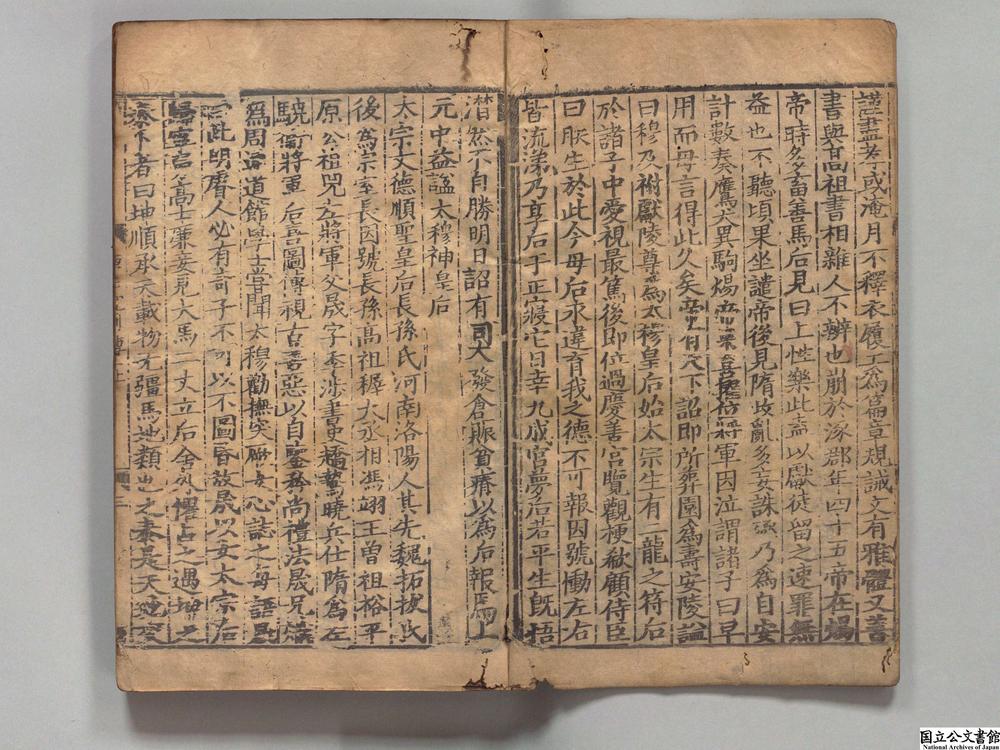 謹盡孝或淹月不釋衣履工為篇章規誡文有雅體又善
書與高祖書相雜人不辨也崩於涿郡年四十五帝在煬
帝時多畜善馬后見曰上性樂此盍以獻徒留之速罪無
益也不聽頃果坐譴帝後見隋政亂多妄誅殛乃為自安
計數奏鷹犬異駒煬帝果喜擢位將軍因泣謂諸子曰早
用而母言得此久矣帝有天下詔即所葬園為壽安陵諡
曰穆乃祔獻陵尊為太穆皇后始太宗生有二龍之符后
於諸子中愛視最篤後即位過慶善宮覽觀梗欷顧侍臣
曰朕生於此今母后永違育我之德不可報因號慟左右
皆流涕乃享后于正寢它日幸九成宮夢后若平生既悟
潸然不自勝明日詔有司大發倉賑貧瘠以為后報焉上
元中益諡太穆神皇后
太宗文德順聖皇后長孫氏河南洛陽人其先魏拓拔氏
後為宗室長因號長孫高祖稺大丞相馮翊王曾祖裕平
原公祖兕左將軍父晟字季涉書史趫鷙曉兵仕隋為左
驍衛將軍后喜圖傳視古善惡以自鑒矜尚禮法晟兄熾
為周通道館學士嘗聞太穆勸撫突厥女心誌之每語晟
曰此明睿人必有奇子不可以不圖昏故晟以女太宗后
歸寧舅高士廉妾見大馬二丈立后舍外懼占之遇坤之
泰卜者曰坤順承天載物无疆馬地類也之泰是天地交
国立公文書館
National Archives of Japan